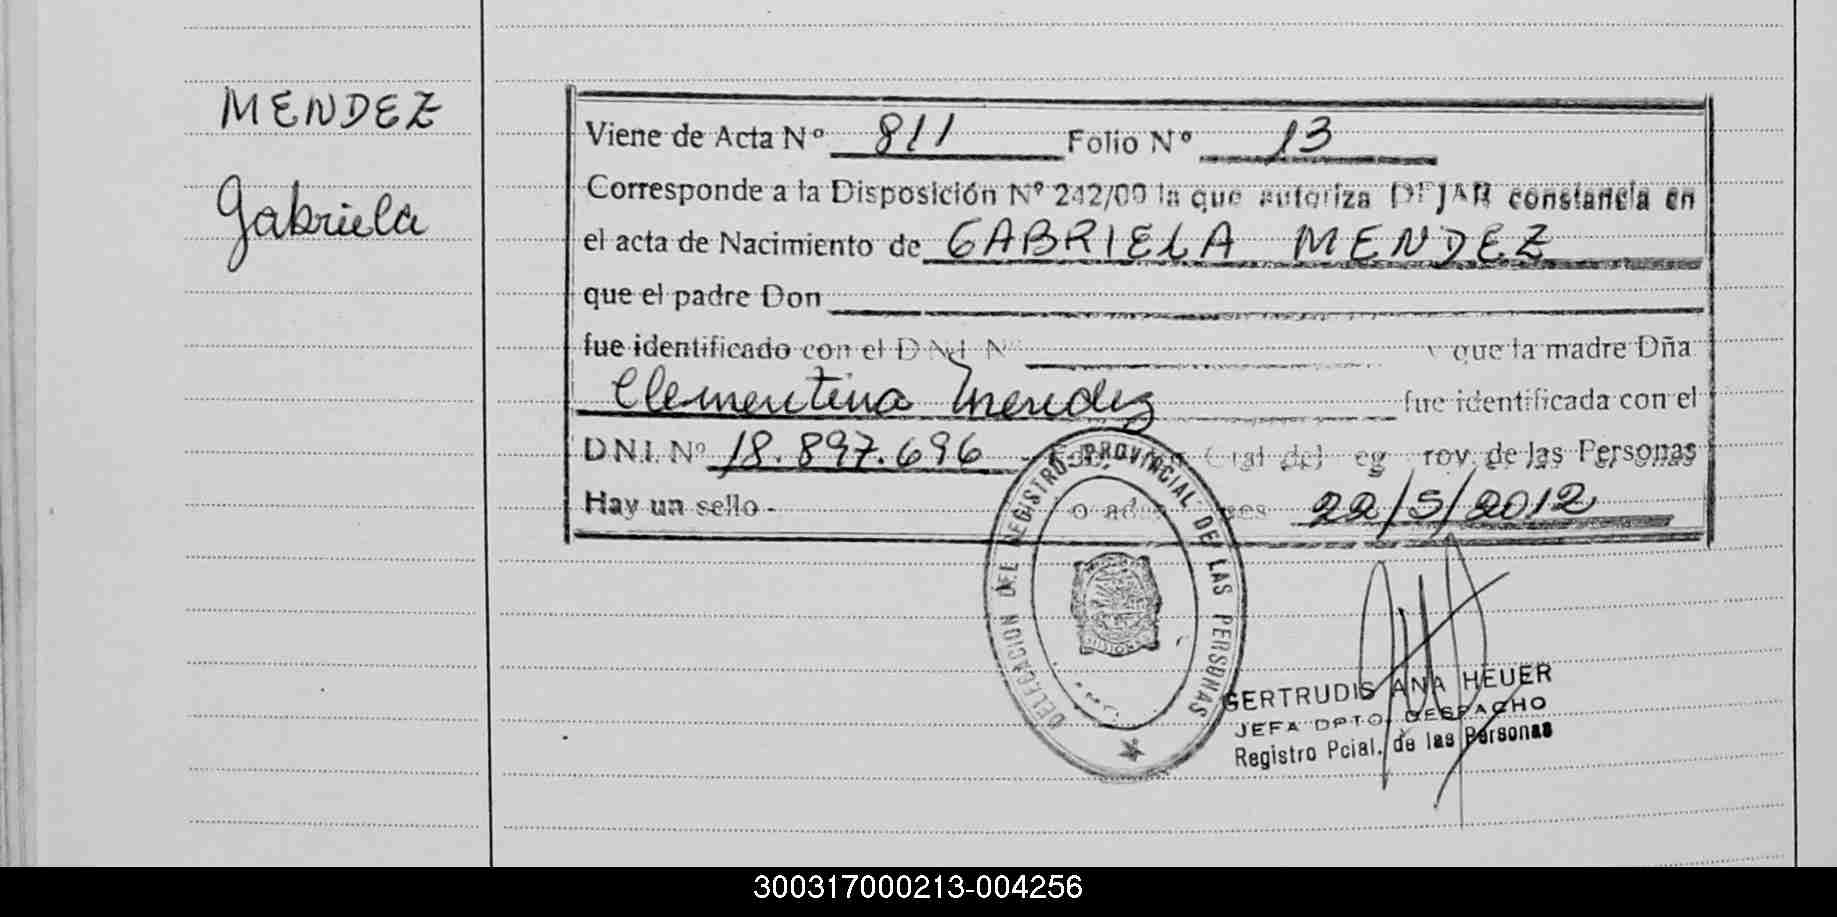 MENDEZ
Gabriela
Viene de Acta Nº 811 Folio Nº 13
Corresponde a la Disposición Nº 242/00 la que autoriza DEJAR constancia en
el acta de Nacimiento de GABRIELA MENDEZ
que el padre Don
fue identificado con el D.N.I. Nº y que la madre Dña
Clementina Mendez fue identificada con el
D.N.I. Nº 18.897.696 Prov. de las Personas
Hay un sello - 22/5/2012
DELEGACION DEL REGISTRO PROVINCIAL DE LAS PERSONAS
GERTRUDIS ANA HEUER
JEFA DPTO. DESPACHO
Registro Pcial. de las Personas
300317000213-004256